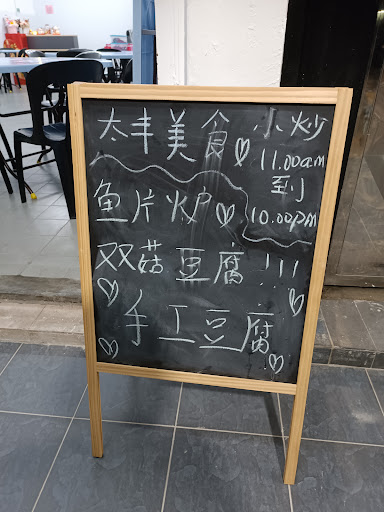 太丰美食 小炒
11.00am
到
10.00pm
鱼片炉
双菇豆腐!!!
手工豆腐